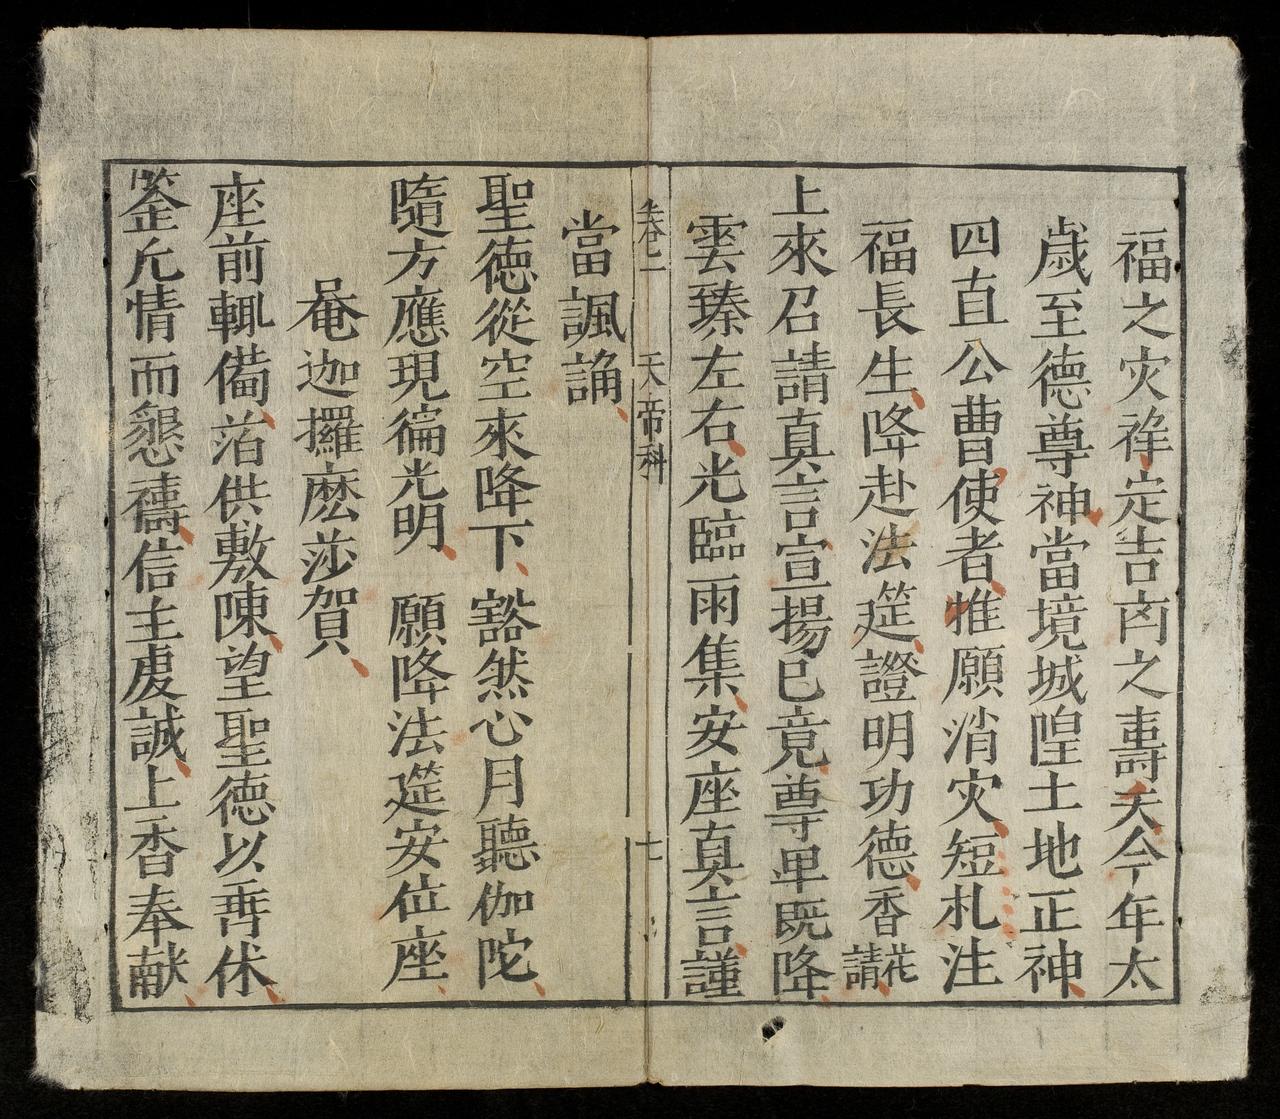 福之灾祥定吉㐫之壽夭今年太
歲至德尊神當境城隍土地正神
四直公曹使者惟願消灾短札注
福長生降赴法筵證明功德香花請
上來召請真言宣揚已竟尊卑既降
雲臻左右光臨雨集安座真言謹
卷一 天帝科 十七
當諷誦
聖德從空來降下豁然心月聽伽陀
隨方應現徧光明 願降法筵安位座
唵迦攞麽莎賀
座前輒備 供敷陳望聖德以 休
鑒允情而懇禱信主虔誠上香奉献